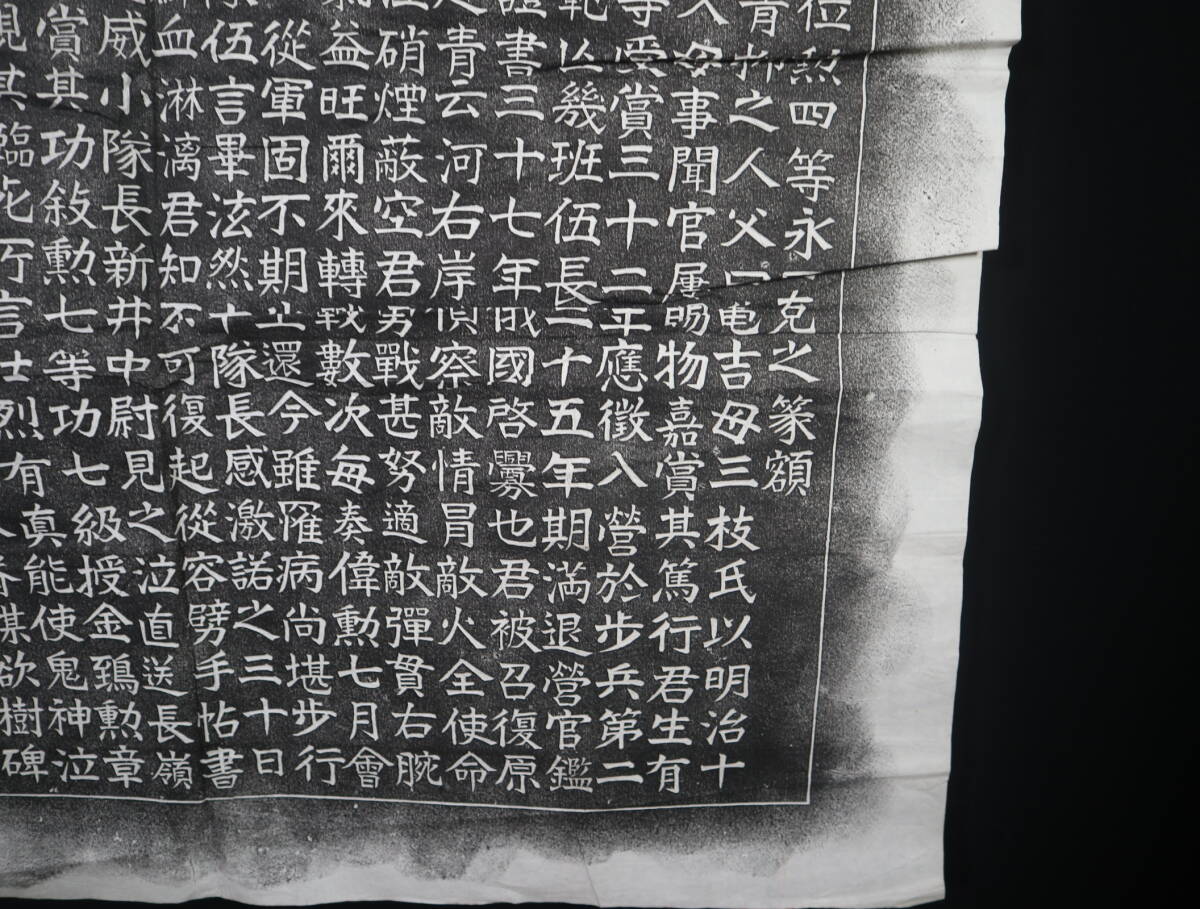 位勲四等永克之篆額
青柳之人父曰亀吉母三枝氏以明治十
入母事聞官屢賜物嘉賞其篤行君生有
等受賞三十二年應徴入營於步兵第二
範以幾班伍長二十五年期満退營官鑑
證書三十七年俄國啓釁也君被召復原
青云河右岸偵察敵情冒敵火全使命
硝煙蔽空君勇戰甚努適敵彈貫右腕
氣益旺爾來轉戰數次每奏偉勲七月會
從軍固不期生還今雖罹病尚堪步行
伍言畢泫然小隊長感激諾之三十日
血淋漓君知不可復起從容劈手帖書
威小隊長新井中尉見之泣直送長嶺
賞其功敘勲七等功七級授金鵄勲章
現其臨死所言壮烈有真能使鬼神泣
謀欲樹碑